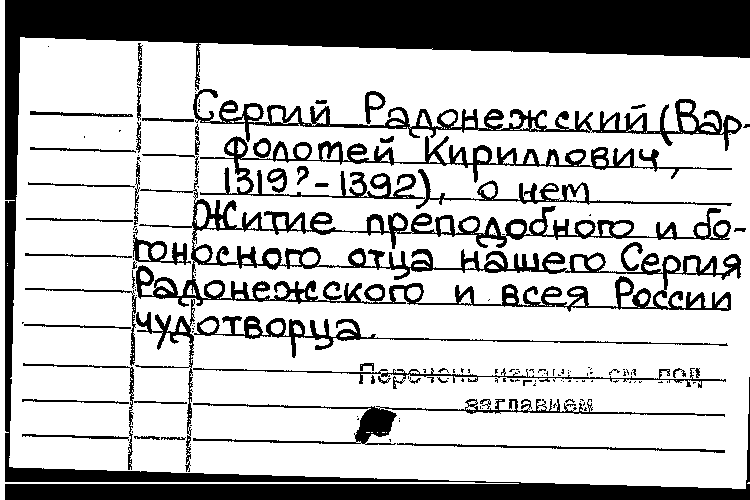 Сергий Радонежский (Вар-
фоломей Кириллович,
1319?-1392), о нем
Житие преподобного и бо-
гоносного отца нашего Сергия
Радонежского и всея России
чудотворца.
Перечень изданий см. под
заглавием